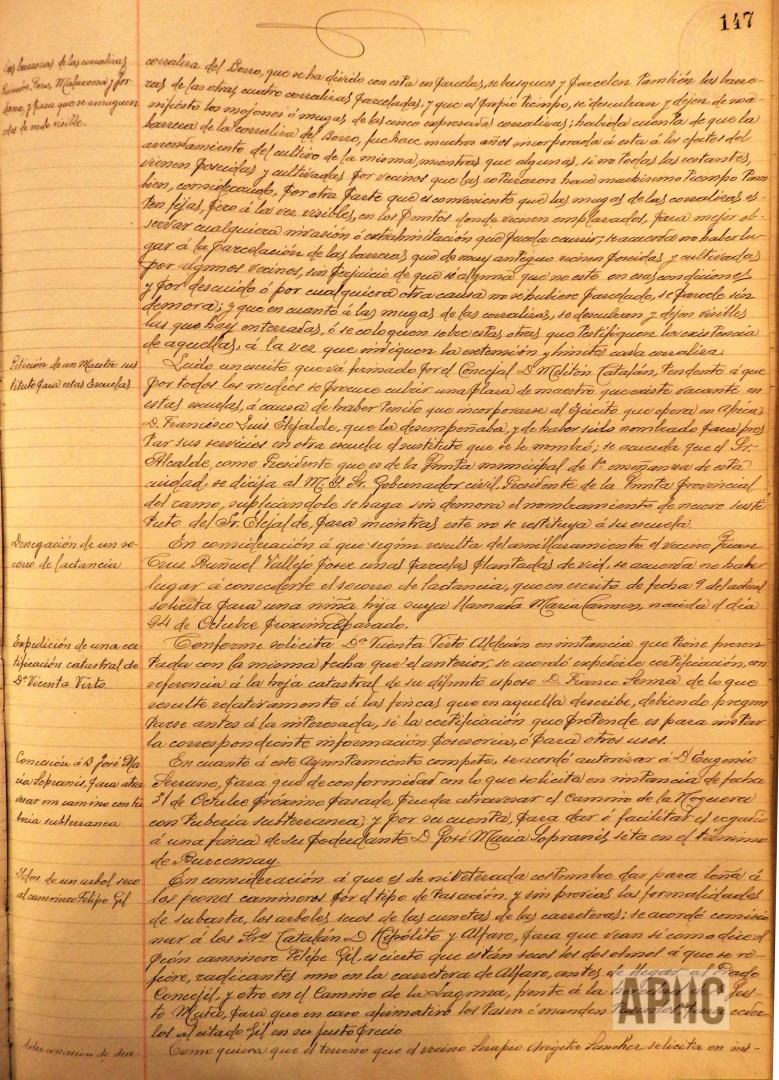 147
las barreras de las corralizas
y para que se amuguen
de modo visible.
corraliza del Borro, que se ha divido con esta en parcelas, se busquen y parcelen también las barre-
ras de las otras cuatro corralizas parceladas, y que al propio tiempo, se descubran y dejen de ma-
nifiesto los mojones ó mugas de las cinco expresadas corralizas; habida cuenta de que la
barrera de la corraliza del Borro, fue hace muchos años incorporada á esta á los efectos del
arrendamiento del cultivo de la misma, mientras que algunas, si no todas las restantes,
vienen poseidas y cultivadas por vecinos que las roturaron hace muchísimo tiempo tam-
bien, considerando, por otra parte que es conveniente que las mugas de las corralizas es-
ten fijas, pero á la vez visibles, en los puntos donde vienen emplazados, para mejor ob-
servar cualquiera invasión ó extralimitación que pueda ocurrir; se acuerda no haber lu-
gar á la parcelación de las barreras que de muy antiguo vienen poseidas y cultivadas
por algunos vecinos, sin perjuicio de que si alguna que no esté en esas condiciones
y por descuido ó por cualquiera otra causa no se hubiere parcelado, se parcele sin
demora; y que en cuanto á las mugas de las corralizas, se descubran y dejen visibles
las que hay enterradas, ó se coloquen sobre estas otras que testifiquen la existencia
de aquellas, á la vez que indiquen la extensión y limites cada corraliza.
Petición de un Maestro sus
tituto para estas Escuelas
Leido un escrito que vá firmado por el Concejal D. Melitón Catalán, tendente á que
por todos los medios se procure cubrir una plaza de maestro que existe vacante en
estas escuelas, á causa de haber tenido que incorporarse al Ejército que opera en Africa
D. Francisco Luis Elejalde, que la desempeñaba, y de haber sido nombrado para pres
tar sus servicios en otra escuela el sustituto que se le nombró; se acuerda que el Sr.
Alcalde, como Presidente que es de la Junta municipal de 1ª enseñanza de esta
ciudad, se dirija al M. Y. Sr. Gobernador civil, Presidente de la Junta Provincial
del ramo, suplicándole se haga sin demora el nombramiento de nuevo susti
tuto del Sr. Elejalde, para mientras este no se restituya á su escuela.
Denegación de un so-
corro de lactancia
En consideración á que según resulta del amillaramiento el vecino Juan
Cruz Buñuel Vallejo posee unas parcelas plantadas de vid, se acuerda no haber
lugar á concederle el socorro de lactancia, que en escrito de fecha 9 del actual
solicita para una niña hija suya llamada Maria Carmen, nacida el dia
24 de Octubre proximo pasado.
Expedición de una cer-
tificación catastral de
Dª Vicenta Virto.
Conforme solicita Dª Vicenta Virto Alduán en instancia que tiene presen-
tada con la misma fecha que el anterior, se acordó expedirle certificación, con
referencia á la hoja catastral de su difunto esposo D. Franco Senra de lo que
resulte relativamente á las fincas que en aquella describe, debiendo pregun
tarse antes á la interesada, si la certificación que pretende es para instar
la correspondiente información posesoria, ó para otros usos.
Concesión á D. José Ma
ria Sopranis, para atra
vesar un camino con tu
beria subterranea
En cuanto á este Ayuntamiento compete, se acordó autorizar á D. Eugenio
Serrano, para que de conformidad con lo que solicita en instancia de fecha
31 de Octubre próximo pasado, pueda atravesar el camino de la Noguera
con tuberia subterranea, y por su cuenta, para dar ó facilitar el regadio
á una finca de su poderdante D. José Maria Sopranis sita en el término
de Burcemay.
Idem de un arbol seco
al caminero Felipe Gil
En consideración á que es de inveterada costumbre dar para leña á
los peones camineros por el tipo de tasación, y sin previas las formalidades
de subasta, los arboles secos de las cunetas de las carreteras; se acordó comisio
nar á los Sres Catalán D. Hipólito y Alfaro, para que vean si como dice el
peón caminero Felipe Gil, es cierto que están secos los dos olmos á que se re-
fiere, radicantes uno en la carretera de Alfaro, antes de llegar al Prado
Concejil, y otro en el Camino de la Laguna, frente á la Jus-
to Mateo, para que en caso afirmativo los tasen ó manden ceder
los al citado Gil en su justo precio.
Sobre concesion de
Como quiera que el terreno que el vecino Serapio Sanchez solicita en ins-
APHC